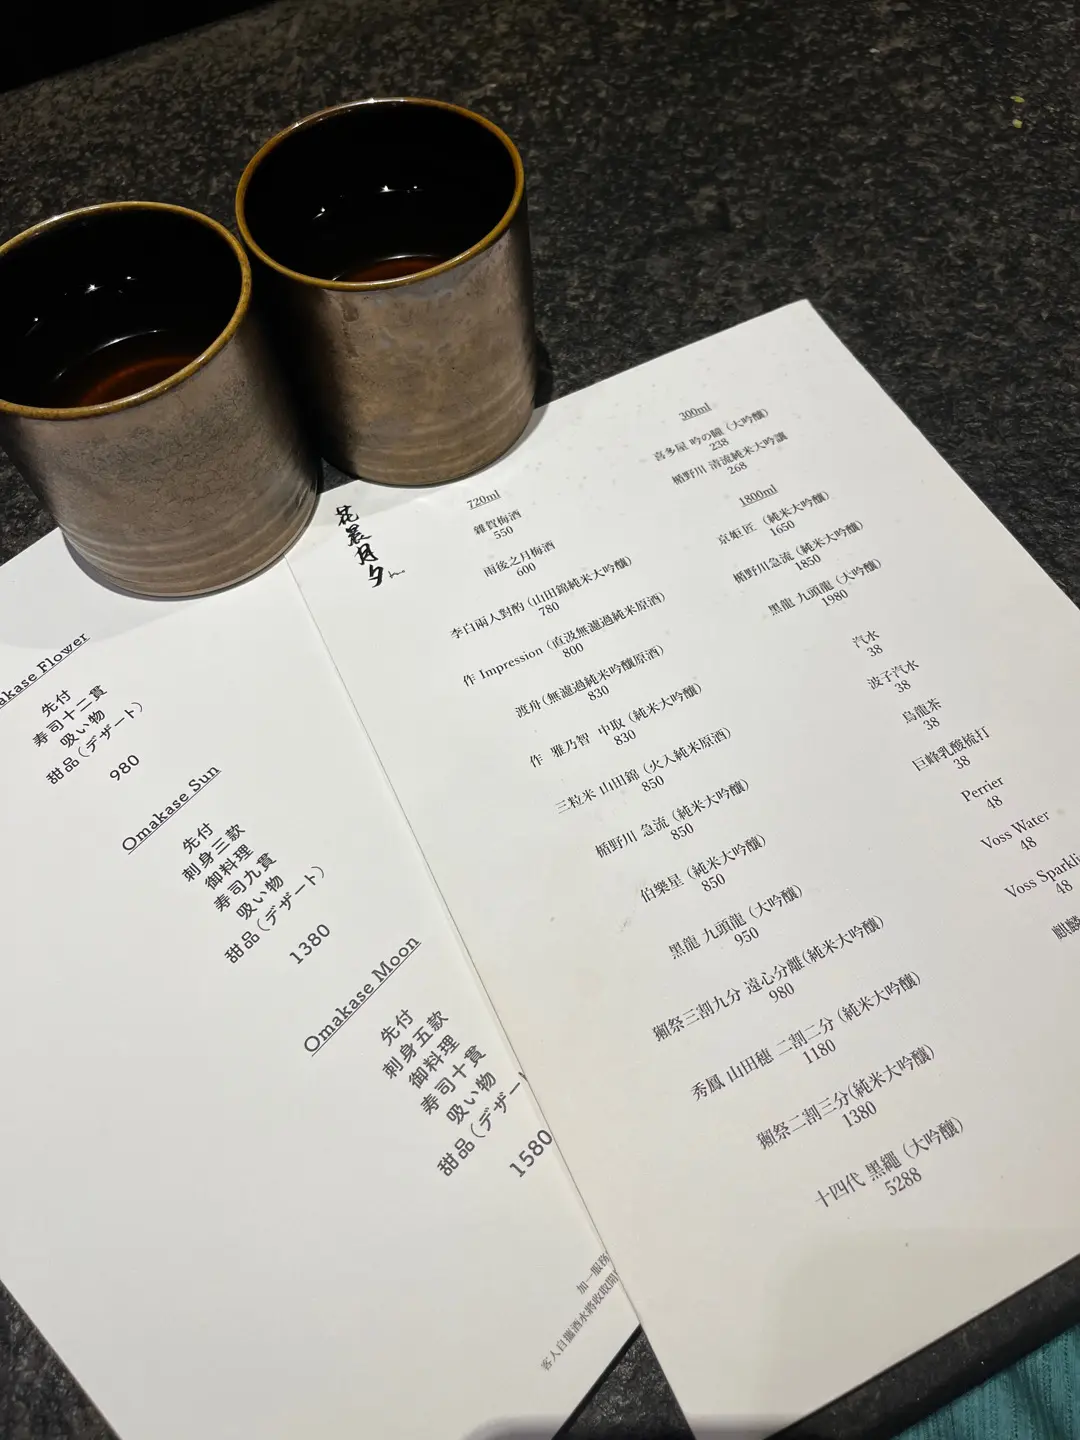 akase Flower
先付
寿司十二貫
吸い物
甜品(デザート)
980
Omakase Sun
先付
刺身三款
御料理
寿司九貫
吸い物
甜品(デザート)
1380
Omakase Moon
先付
刺身五款
御料理
寿司十貫
吸い物
甜品(デザー
1580
加一服務
客人自攜酒水將收取開
花晨月夕
720ml
雜賀梅酒
550
雨後之月梅酒
600
李白兩人對酌 (山田錦純米大吟釀)
780
作 Impression (直汲無濾過純米原酒)
800
渡舟(無濾過純米吟釀原酒)
830
作 雅乃智 中取 (純米大吟釀)
830
三粒米 山田錦 (火入純米原酒)
850
楯野川 急流 (純米大吟釀)
850
伯樂星 (純米大吟釀)
850
黑龍 九頭龍 (大吟釀)
950
獺祭三割九分 遠心分離(純米大吟釀)
980
秀鳳 山田穗 二割二分 (純米大吟釀)
1180
獺祭二割三分(純米大吟釀)
1380
十四代 黑繩 (大吟釀)
5288
300ml
喜多屋 吟の瞳 (大吟釀)
238
楯野川 清流純米大吟讓
268
1800ml
京姫匠 (純米大吟釀)
1650
楯野川急流 (純米大吟釀)
1850
黑龍 九頭龍 (大吟釀)
1980
汽水
38
波子汽水
38
烏龍茶
38
巨峰乳酸梳打
38
Perrier
48
Voss Water
48
Voss Sparkli
48
麒麟